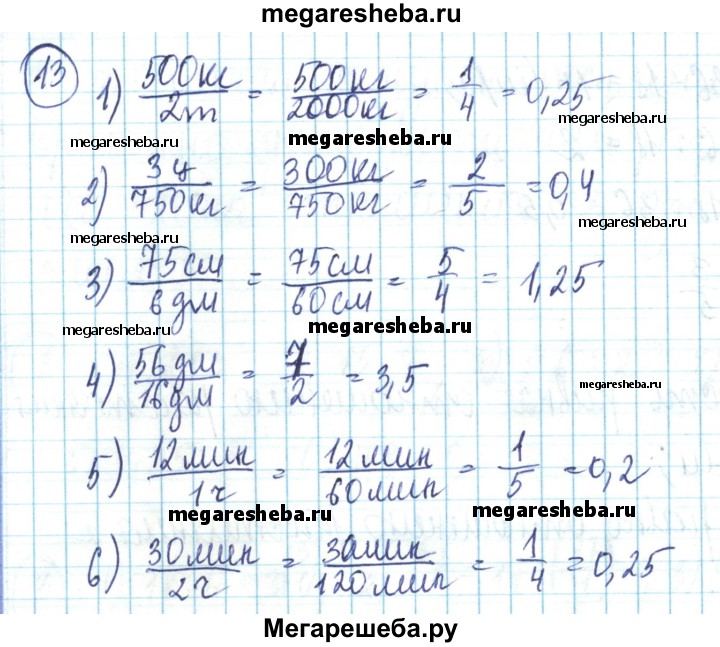 megaresheba.ru
13 1) 500кг/2т = 500кг/2000кг = 1/4 = 0,25
megaresheba.ru megaresheba.ru megaresheba.ru
2) 3ц/750кг = 300кг/750кг = 2/5 = 0,4
megaresheba.ru megaresheba.ru
3) 75см/6дм = 75см/60см = 5/4 = 1,25
megaresheba.ru megaresheba.ru
4) 56дм/16дм = 7/2 = 3,5
megaresheba.ru
5) 12мин/1г = 12мин/60мин = 1/5 = 0,2
megaresheba.ru megaresheba.ru
6) 30мин/2г = 30мин/120мин = 1/4 = 0,25
Мегарешеба.ру